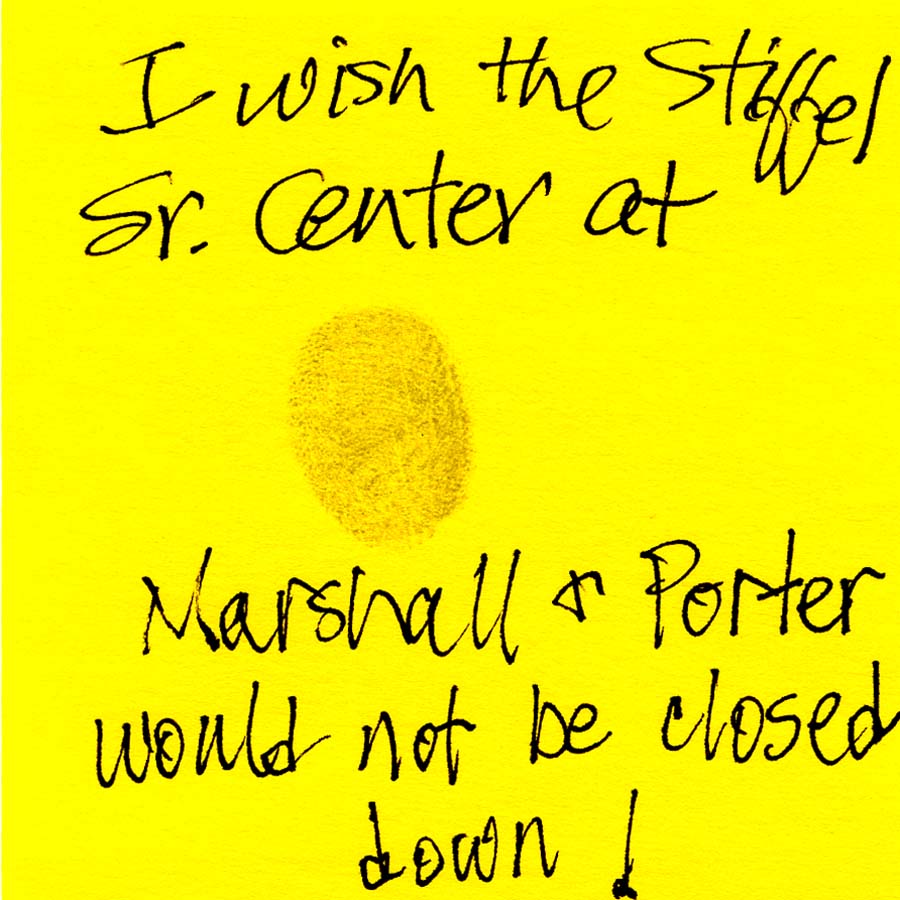 I wish the Stiffel
Sr. Center at
Marshall & Porter
would not be closed
down!